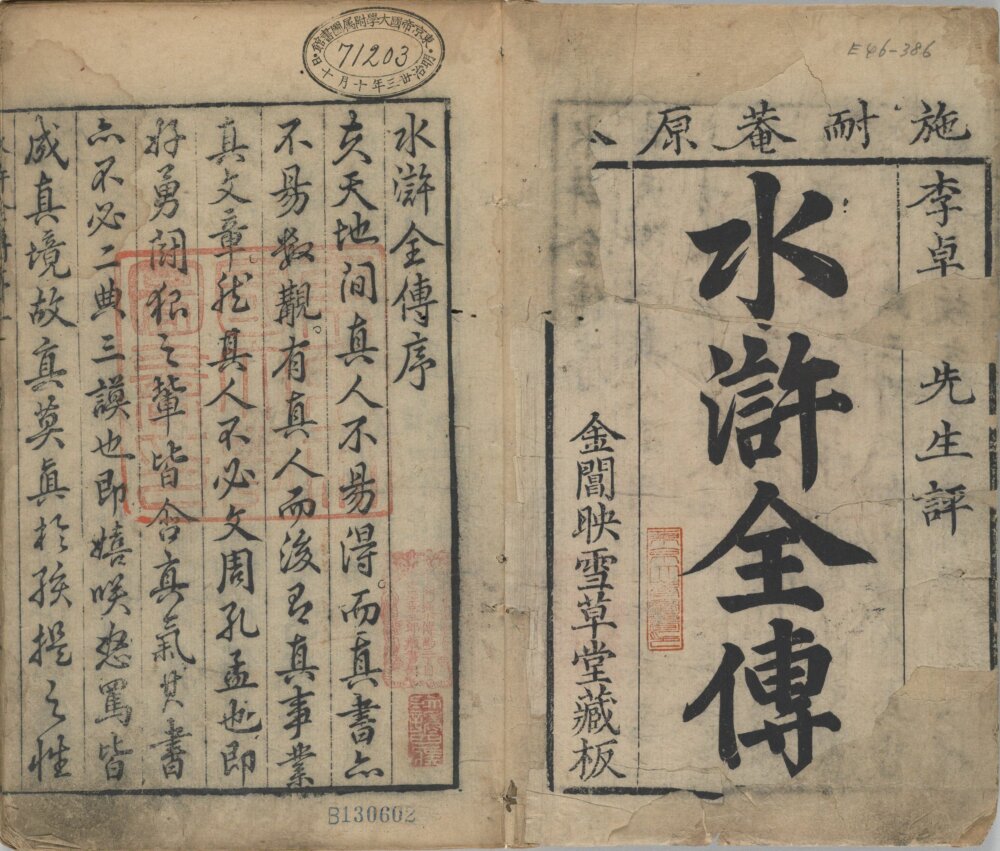 E46-386
施耐菴原
李卓 先生評
水滸全傳
金閶映雪草堂藏板
東京帝國大學附属圖書館
71203
明治卅三年十月十日
水滸全傳序
夫天地間真人不易得而真書亦
不易数觀。有真人而後有真事業
真文章然其人不必文周孔孟也即
好勇鬪狠之輩皆含真氣其書
亦不必二典三謨也即嬉咲怒罵皆
成真境故真莫真於孩提之性
B130602